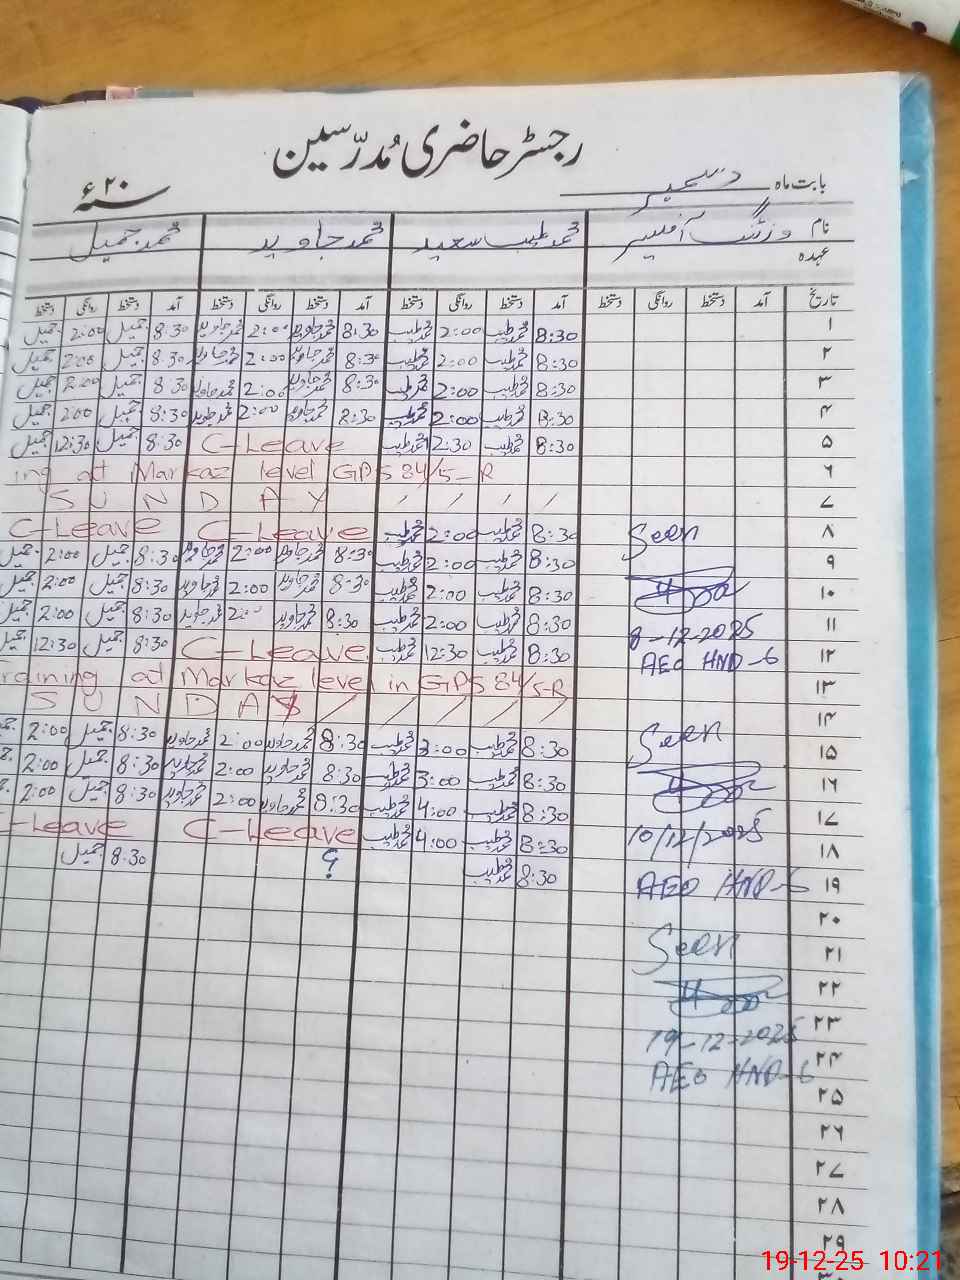 رجسٹر حاضری مُدرّسین
بابت ماہ دسمبر سنہ ۲۰ء
نام وزٹنگ آفیسر محمد طیب سعید محمد جاوید محمد جمیل
عہدہ
تاریخ آمد دستخط روانگی دستخط آمد دستخط روانگی دستخط آمد دستخط روانگی دستخط آمد دستخط روانگی دستخط
۱ 8:30 محمد طیب 2:00 محمد طیب 8:30 محمد جاوید 2:00 محمد جاوید 8:30 جمیل 2:00 جمیل
۲ 8:30 محمد طیب 2:00 محمد طیب 8:30 محمد جاوید 2:00 محمد جاوید 8:30 جمیل 2:00 جمیل
۳ 8:30 محمد طیب 2:00 محمد طیب 8:30 محمد جاوید 2:00 محمد جاوید 8:30 جمیل 2:00 جمیل
۴ 8:30 محمد طیب 2:00 محمد طیب 8:30 محمد جاوید 2:00 محمد جاوید 8:30 جمیل 2:00 جمیل
۵ 8:30 محمد طیب 12:30 محمد طیب C-Leave 8:30 جمیل 12:30 جمیل
۶ ing at Markaz level GPS 84/5-R
۷ S U N D A Y / / / /
۸ 8:30 محمد طیب 2:00 محمد طیب C-Leave C-Leave
Seen
۹ 8:30 محمد طیب 2:00 محمد طیب 8:30 محمد جاوید 2:00 محمد جاوید 8:30 جمیل 2:00 جمیل
۱۰ 8:30 محمد طیب 2:00 محمد طیب 8:30 محمد جاوید 2:00 محمد جاوید 8:30 جمیل 2:00 جمیل
۱۱ 8:30 محمد طیب 2:00 محمد طیب 8:30 محمد جاوید 2:00 محمد جاوید 8:30 جمیل 2:00 جمیل
8-12-2025
۱۲ 8:30 محمد طیب 12:30 محمد طیب C-Leave 8:30 جمیل 12:30 جمیل
AEO HND-6
۱۳ raining at Markaz level in GPS 84/5-R
۱۴ S U N D A Y / / / / /
Seen
۱۵ 8:30 محمد طیب 3:00 محمد طیب 8:30 محمد جاوید 2:00 محمد جاوید 8:30 جمیل 2:00
۱۶ 8:30 محمد طیب 3:00 محمد طیب 8:30 محمد جاوید 2:00 محمد جاوید 8:30 جمیل 2:00
۱۷ 8:30 محمد طیب 4:00 محمد طیب 8:30 محمد جاوید 2:00 محمد جاوید 8:30 جمیل 2:00
10/12/2025
۱۸ 8:30 محمد طیب 4:00 محمد طیب C-Leave -Leave
۱۹ 8:30 محمد طیب ؟ 8:30 جمیل
AEO HND-6
۲۰
۲۱
Seen
۲۲
۲۳
19-12-2025
۲۴
AEO HND-6
۲۵
۲۶
۲۷
۲۸
۲۹
19-12-25 10:21